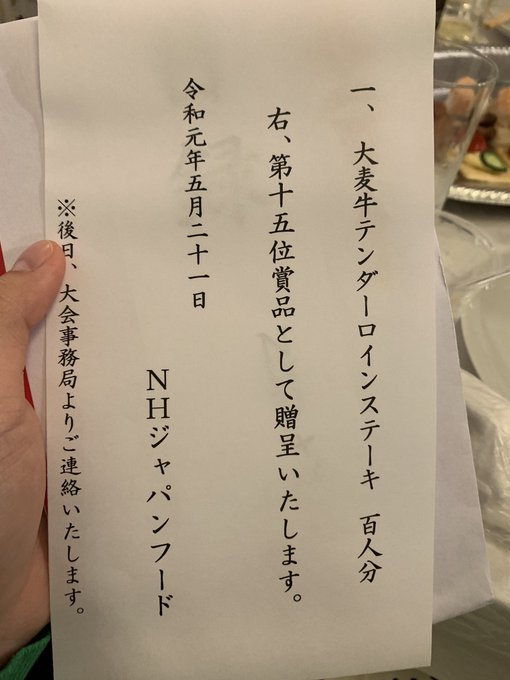 一、大麦牛テンダーロインステーキ　百人分
右、第十五位賞品として贈呈いたします。
令和元年五月二十一日
NHジャパンフード
※後日、大会事務局よりご連絡いたします。